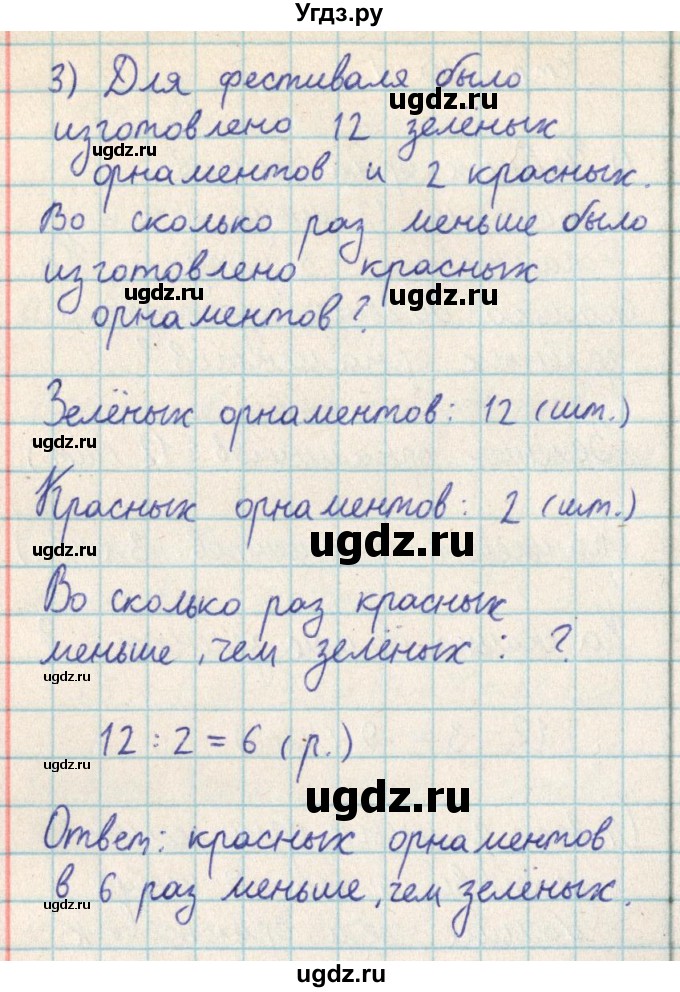 Угдз.ру
3) Для фестиваля было
ugdz.ru
изготовлено 12 зелёных
ugdz.ru
орнаментов и 2 красных.
Во сколько раз меньше было
изготовлено красных
ugdz.ru ugdz.ru
орнаментов?
Зелёных орнаментов: 12 (шт.)
ugdz.ru
Красных орнаментов: 2 (шт.)
ugdz.ru ugdz.ru
Во сколько раз красных
меньше, чем зелёных: ?
ugdz.ru
12 : 2 = 6 (р.)
ugdz.ru
ugdz.ru
Ответ: красных орнаментов
в 6 раз меньше, чем зелёных.
ugdz.ru
ugdz.ru